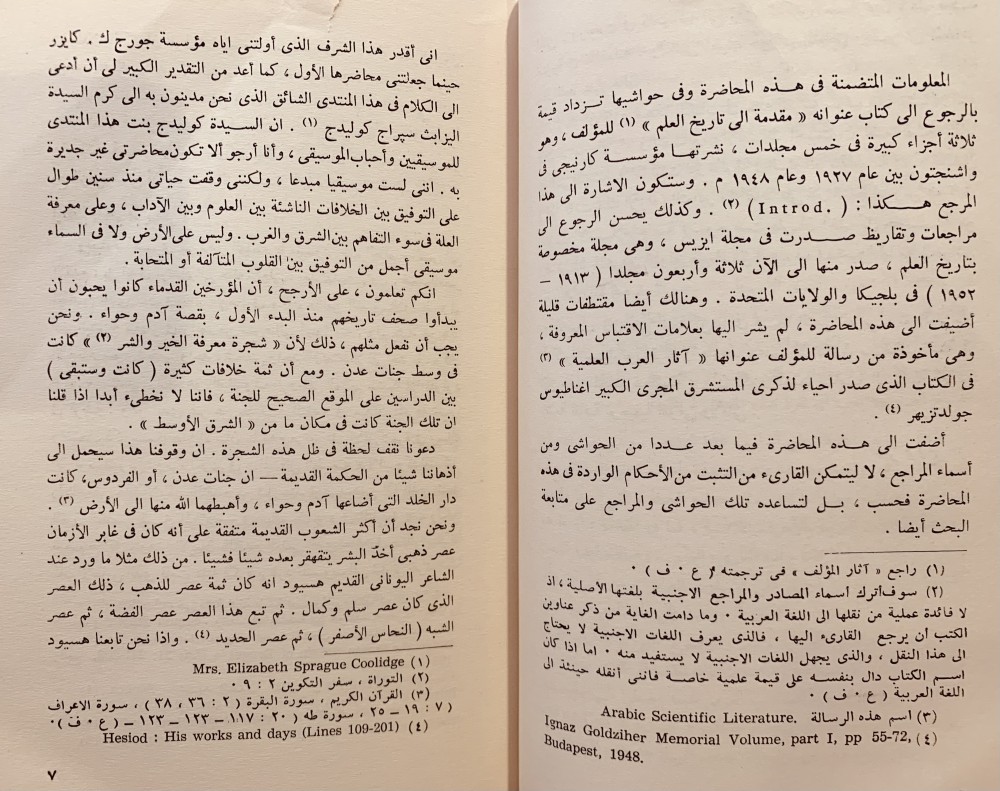 المعلومات المتضمنة فى هـــذه المحاضرة وفى حواشيها تـزداد قيمة
بالرجوع الى كتاب عنوانه « مقدمة الى تاريخ العلم » (١) للمؤلف ، وهو
ثلاثة أجزاء كبيرة فى خمس مجلدات ، نشرتهـا مؤسســة كارنيجى فى
واشنجتون بين عام ١٩٢٧ وعام ١٩٤٨ م . وستكون الاشارة الى هذا
المرجع هــــكذا : ( Introd. ) (٢) . وكذلك يحسن الرجوع الى
مراجعات وتقاريظ صـــدرت فى مجلة ايزيس ، وهى مجلة مخصوصة
بتاريخ العلم ، صدر منها الى الآن ثلاثة وأربعون مجلدا ( ١٩١٣ –
١٩٥٢ ) فى بلجيكا والولايات المتحدة . وهنالك أيضا مقتطفات قليلة
أضيفت الى هذه المحاضرة ، لم يشر اليها بعلامات الاقتباس المعروفة ،
وهى مأخوذة من رسالة للمؤلف عنوانها « آثار العرب العلمية » (٣)
فى الكتاب الذى صدر احياء لذكرى المستشرق المجرى الكبير اغناطيوس
جولدتزيهر (٤) .
أضفت الى هــذه المحاضرة فيما بعد عــددا من الحواشى ومن
أسماء المراجع ، لا ليتمكن القارىء من التثبت من الأحكام الواردة فى هذه
المحاضرة فحسب ، بــل لتساعده تلك الحواشى والمراجع على متابعة
البحث أيضا .
(١) راجع « آثار المؤلف » فى ترجمته ( ع ٠ ف ) ٠
(٢) سوف اترك أسماء المصادر والمراجع الاجنبية بلغتها الاصلية ، اذ
لا فائدة عملية من نقلها الى اللغة العربية ٠ وما دامت الغاية من ذكر عناوين
الكتب أن يرجع القارىء اليها ، فالذى يعرف اللغات الاجنبية لا يحتاج
الى هذا النقل ، والذى يجهل اللغات الاجنبية لا يستفيد منه ٠ اما اذا كان
اسـم الكتاب دال بنفسـه على قيمة علمية خاصـة فاننى أنقله حينئذ الى
اللغة العربية ( ع ٠ ف ) ٠
(٣) اسم هذه الرسالة Arabic Scientific Literature.
(٤) Ignaz Goldziher Memorial Volume, part I, pp 55-72,
Budapest, 1948.
انى أقدر هذا الشرف الذى أولتنى اياه مؤسسة جورج ك . كايزر
حينما جعلتنى محاضرها الأول ، كما أعد من التقدير الكبير لى أن أدعى
الى الكلام فى هذا المنتدى الشائق الذى نحن مدينون به الى كرم السيدة
اليزابث سپراج كوليدج (١) . ان السـيدة كوليدج بنت هذا المنتدى
للموسيقيين وأحباب الموسيقى ، وأنا أرجو ألا تكون محاضرتى غير جديرة
به . اننى لست موسيقيا مبدعا ، ولكننى وقفت حياتى منذ سنين طوال
على التوفيق بين الخلافات الناشئة بين العلوم وبين الآداب ، وعلى معرفة
العلة فى سوء التفاهم بين الشرق والغرب . وليس على الأرض ولا فى السماء
موسيقى أجمل من التوفيق بين القلوب المتآلفة أو المتحابة .
انكم تعلمون ، على الأرجح ، أن المؤرخين القدماء كانوا يحبون أن
يبدأوا صحف تاريخهم منذ البدء الأول ، بقصة آدم وحواء . ونحن
يجب أن نفعل مثلهم ، ذلك لأن « شجرة معرفة الخير والشر (٢) » كانت
فى وسط جنات عدن . ومع أن ثمة خلافات كثيرة ( كانت وستبقى )
بين الدراسين على الموقع الصحيح للجنة ، فاننا لا نخطىء أبدا اذا قلنا
ان تلك الجنة كانت فى مكان ما من « الشرق الأوسط » .
دعونا نقف لحظة فى ظل هذه الشجرة . ان وقوفنا هذا سيحمل الى
أذهاننا شيئا من الحكمة القديمة — ان جنات عدن ، أو الفردوس، كانت
دار الخلد التى أضاعها آدم وحواء ، وأهبطهما الله منها الى الأرض (٣) .
ونحن نجد أن أكثر الشعوب القديمة متفقة على أنه كان فى غابر الأزمان
عصر ذهبى أخذ البشر يتقهقر بعده شيئا فشيئا . من ذلك مثلا ما ورد عند
الشاعر اليونانى القديم هسيود انه كان ثمة عصر للذهب ، ذلك العصر
الذى كان عصر سلم وكمال . ثم تبع هذا العصر عصر الفضة ، ثم عصر
الشبه ( النحاس الأصفر ) ، ثم عصر الحديد (٤) . واذا نحن تابعنا هسيود
(١) Mrs. Elizabeth Sprague Coolidge
(٢) التوراة ، سفر التكوين ٢ : ٩ ٠
(٣) القرآن الكريم ، سورة البقرة ( ٢ : ٣٦ ، ٣٨ ) ، سورة الاعراف
( ٧ : ١٩ – ٢٥ ، سورة طه ( ٢٠ : ١١٧ – ١٢٣ – ١٢٣ – ( ع ٠ ف ) ٠
(٤) Hesiod : His works and days (Lines 109-201)
٧